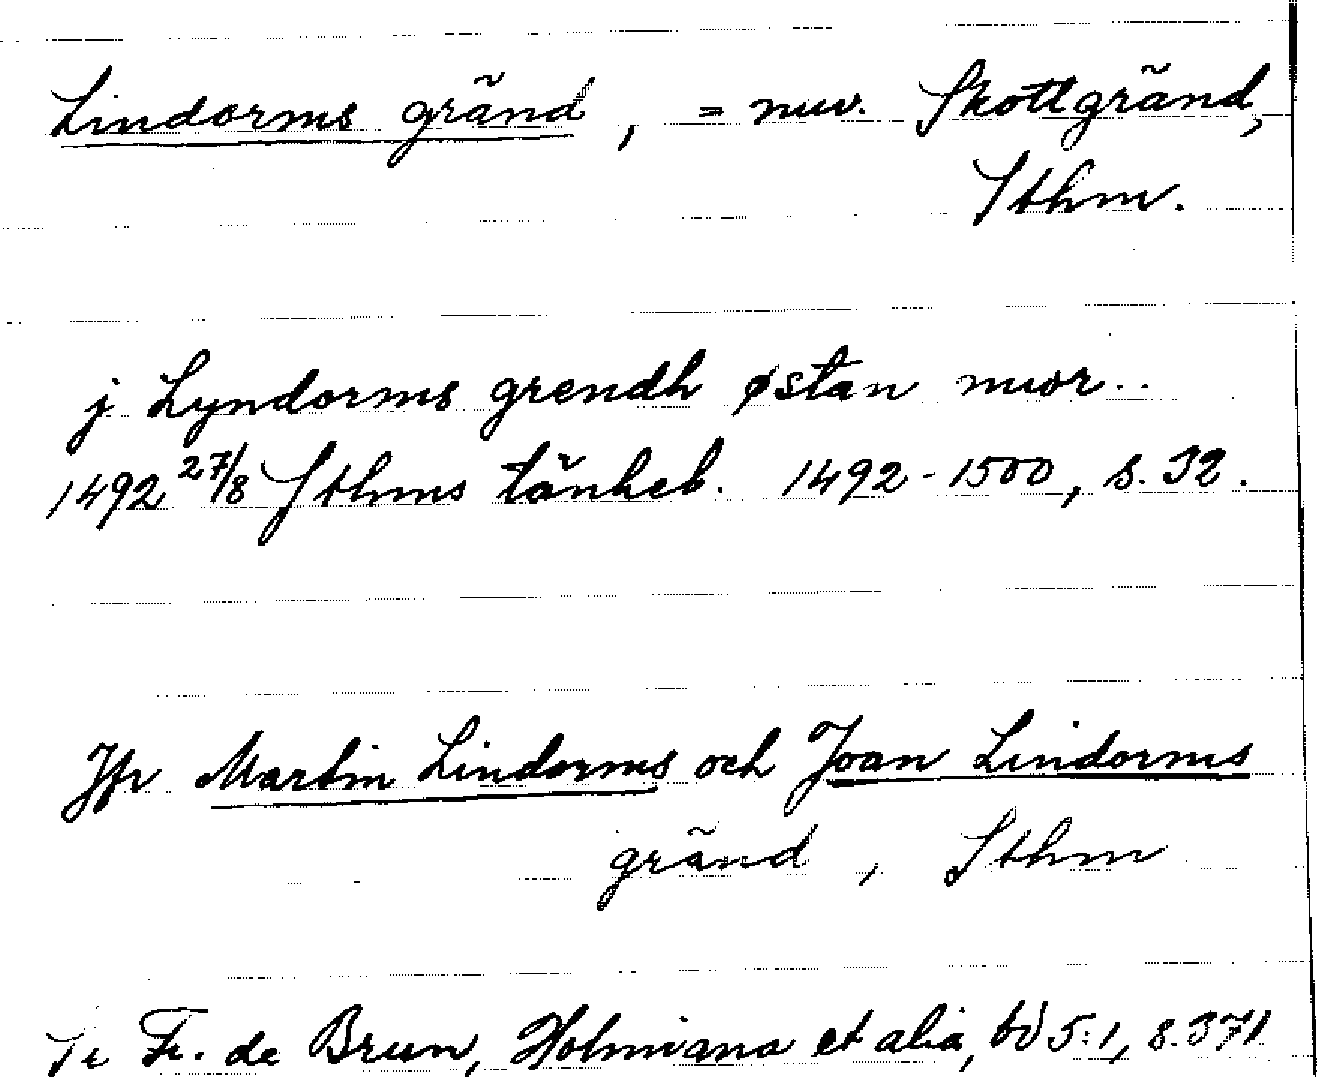 Lindorms gränd, = nuv. Skottgränd,
Sthm.
j Lyndorms grendh østan mwr..
1492 27/8 Sthms tänkeb. 1492-1500, s. 32.
Jfr Martin Lindorms och Joan Lindorms
gränd, Sthm
Se Fr. de Brun, Holmiana et alia, bd 5:1, s. 371